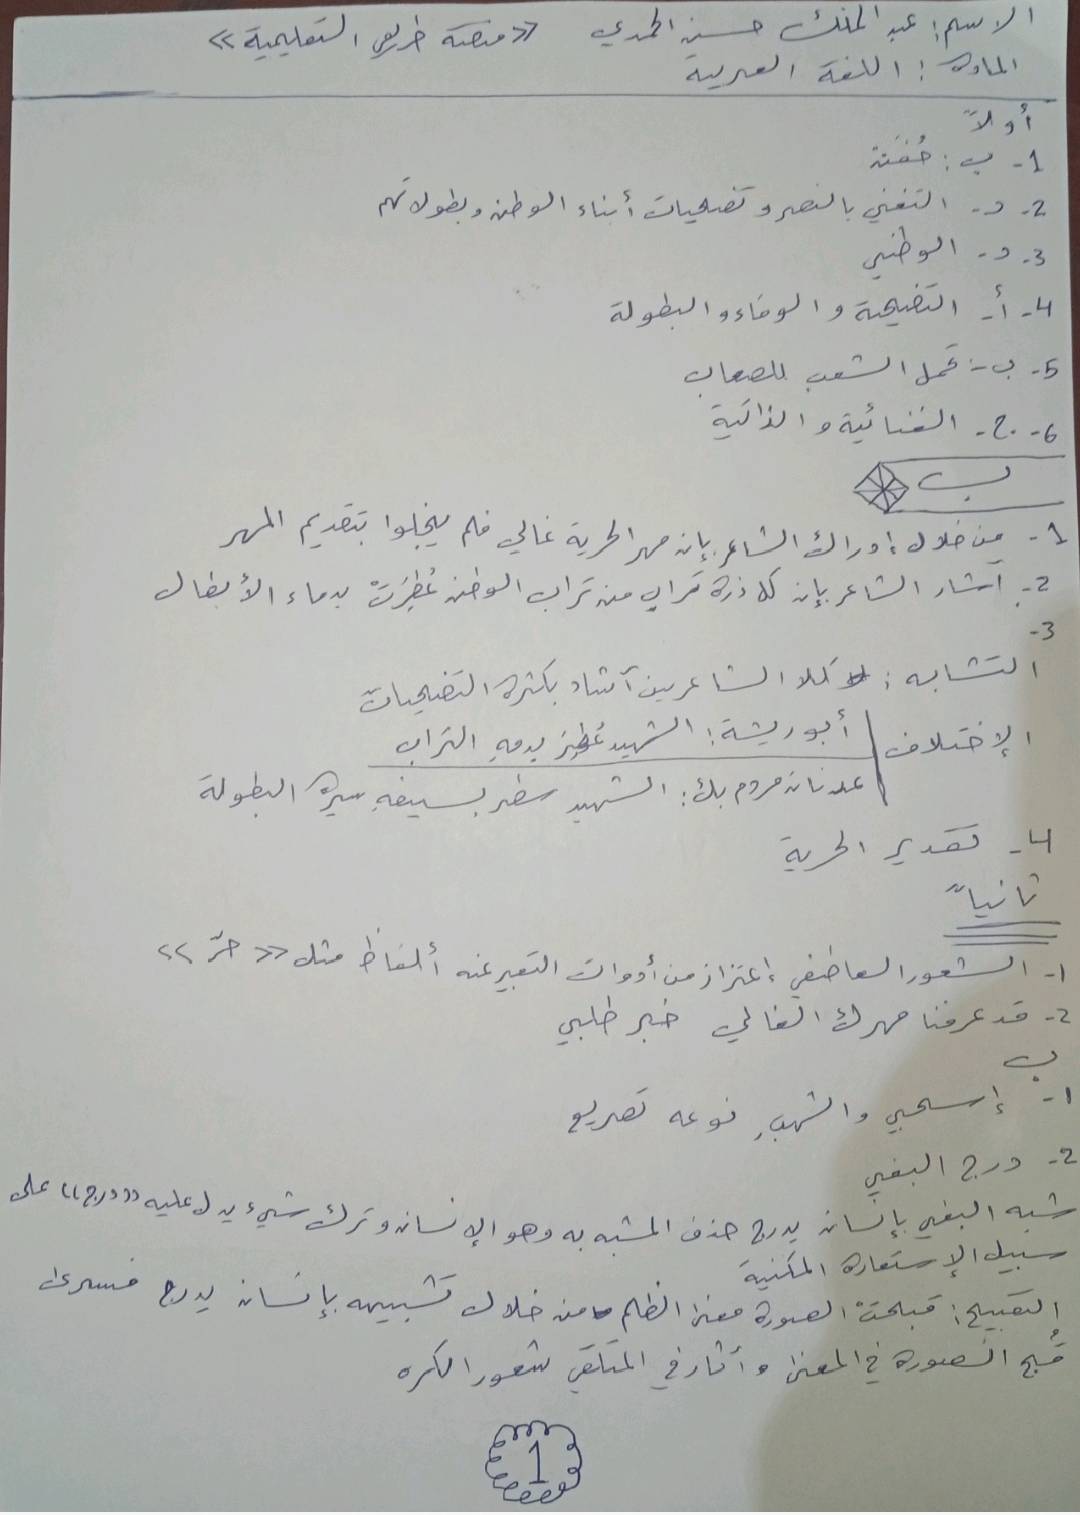 الاسم: عبد الملك حسين الحمدي «منصة طريقي التعليمية»
المادة: اللغة العربية
أولاً
1- ب: حُفنة
2- د- التغني بالنصر وتضحيات أبناء الوطن وبطولاتهم
3- د- الوطني
4- أ- التضحية والوفاء والبطولة
5- ب- تحمل الشعب للصعاب
6- ج- الغنائية والذاتية
ب
1- من خلال إدراك الشاعر بإن مهر الحرية غالي فلم يبخلوا بتقديم المهر
2- أشار الشاعر بإن كل ذرة تراب من تراب الوطن عُطِرَتْ بدماء الأبطال
3-
التشابه: كلا الشاعرين أشاد بكثرة التضحيات
الإختلاف أبو ريشة: الشهيد عُطِر بدمهِ التراب
عدنان مردم بك: الشهيد سطر بسيفهِ سيرة البطولة
4- تقدير الحرية
ثانياً
1- الشعور العاطفي إعتزاز من أدوات التعبير عنه ألفاظ مثل «حرّ»
2- قد عرفنا مهرك الغالي خبر طلبي
ب
1- إسحبي والشهبِ نوعه تصريع
2- درج البغي
شبه البغي بإنسان يدرج حذف المشبه به وهو الإنسان وترك شيء يدل عليه «درج» على
سبيل الإستعارة المكنية
التقبيح: قبحتْ الصورة معنى الظلم من خلال تشبيهه بإنسان يدرج فسرى
قُبح الصورة في المعنى وأثار في المتلقي شعور الكره
1